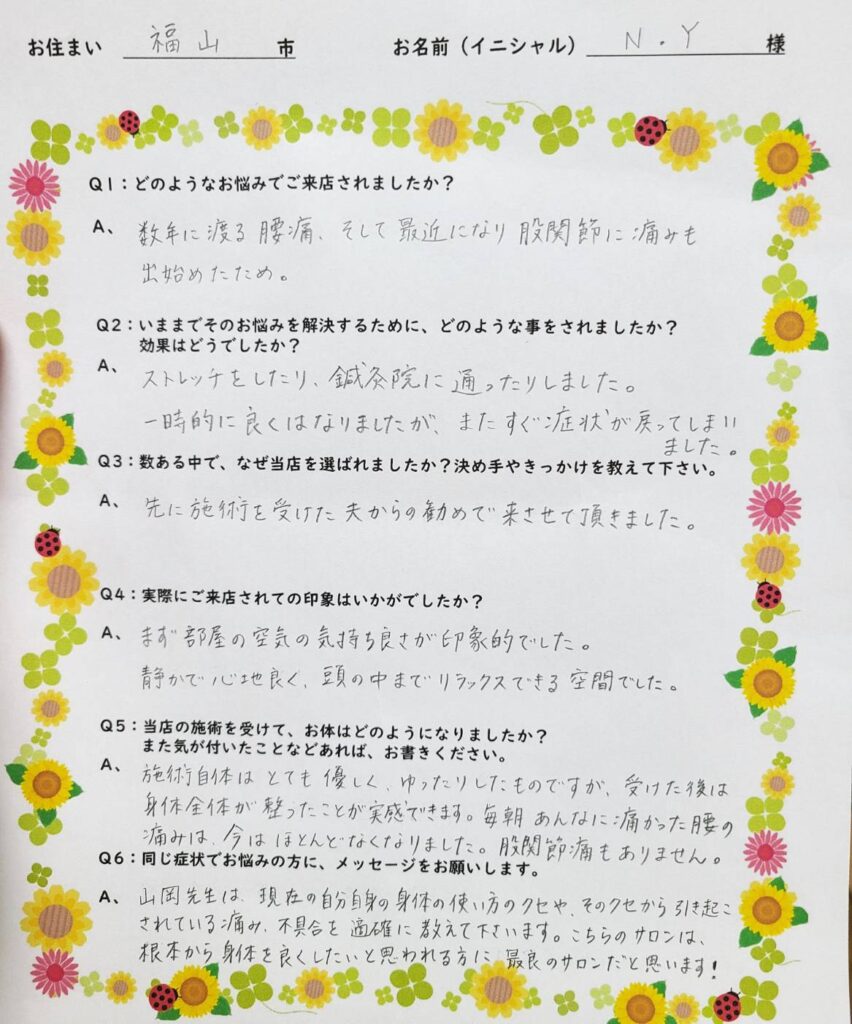 お住まい 福山 市 お名前（イニシャル） N.Y 様
Q1：どのようなお悩みでご来店されましたか？
A、 数年に渡る腰痛、そして最近になり股関節に痛みも
出始めたため。
Q2：いままでそのお悩みを解決するために、どのような事をされましたか？
効果はどうでしたか？
A、 ストレッチをしたり、鍼灸院に通ったりしました。
一時的に良くはなりましたが、またすぐ症状が戻ってしまい
ました。
Q3：数ある中で、なぜ当店を選ばれましたか？決め手やきっかけを教えて下さい。
A、 先に施術を受けた夫からの勧めで来させて頂きました。
Q4：実際にご来店されての印象はいかがでしたか？
A、 まず部屋の空気の気持ち良さが印象的でした。
静かで心地良く、頭の中までリラックスできる空間でした。
Q5：当店の施術を受けて、お体はどのようになりましたか？
また気が付いたことなどあれば、お書きください。
A、 施術自体はとても優しく、ゆったりしたものですが、受けた後は
身体全体が整ったことが実感できます。毎朝あんなに痛かった腰の
痛みは、今はほとんどなくなりました。股関節痛もありません。
Q6：同じ症状でお悩みの方に、メッセージをお願いします。
A、 山岡先生は、現在の自分自身の身体の使い方のクセや、そのクセから引き起こ
されている痛み、不具合を適確に教えて下さいます。こちらのサロンは、
根本から身体を良くしたいと思われる方に、最良のサロンだと思います！